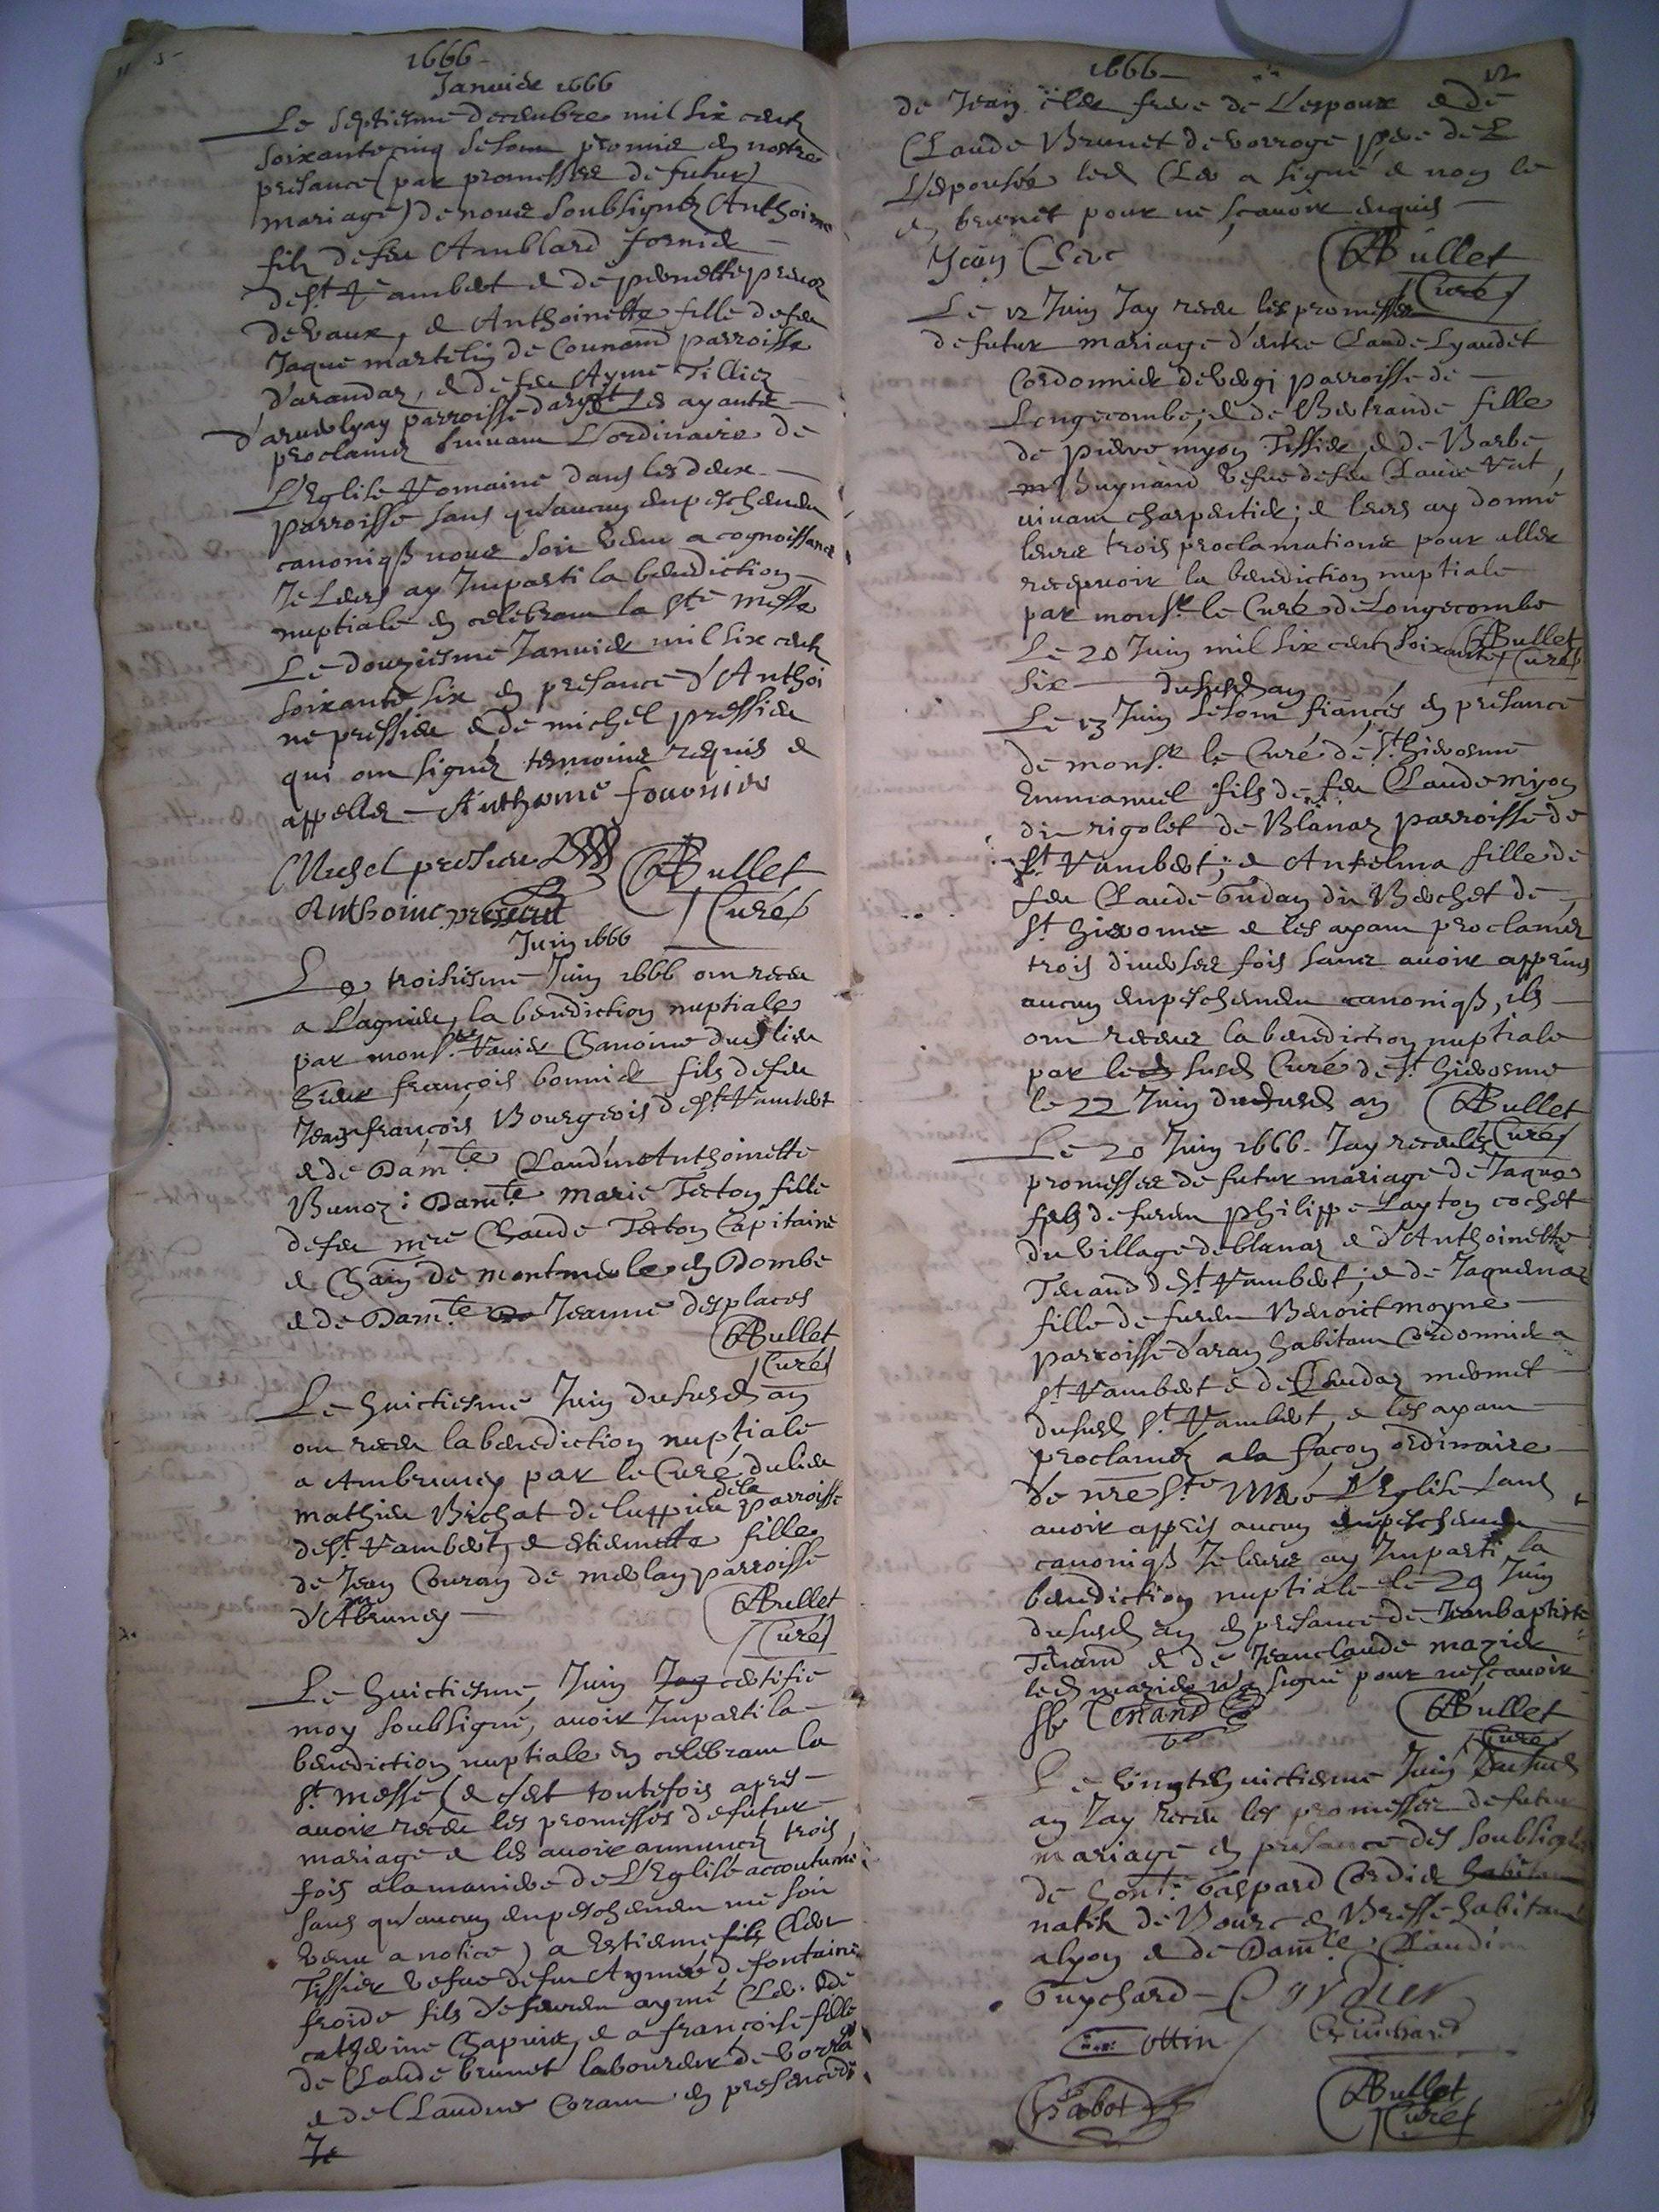 1666
Januier 1666
Le septiesme decembre mil six cent
soixante cinq se sont promis en nostre
presance (par promesses de futur
mariage) de nous soubsignéz Anthoine
filz de feu Amblard fornier
de St Rambert & de pernette
de vaux, & Anthoinette fille de feu
Jaque martelin de parroisse
d'arandaz, & de feu Ayme Tillier
parroisse d'arandaz Les ayantz
proclaméz suiuant L'ordinaire de
L'Eglise Romaine dans les deux
parroisse sans qu'aucun empeschement
canoniq nous soit venu a cognoissance
Je Leurs ay Imparti la benediction
nuptiale en celebrant la Ste Messe
Le douziesme Januier mil six cent
soixante six en presance d'Anthoi
ne pressieu & de michel pressieu
qui ont signéz temoins requis &
appellés Anthoine fournier
Michel pressieu
Anthoine
ABullet
Curé
Juin 1666
Le troisiesme Juin 1666 ont receu
a Lagnieu la benediction nuptiale
par monsr Chanoine dud lieu
Sieur françois bonnier fils de feu
Jean françois Bourgeois de St Rambert
& de Damle Claudine Anthoinette
Bunoz; Damle Marie Terton fille
de feu mre Claude Terton Capitaine
& Chain de montmerle en Dombe
& de Damle Jeanne desplaces
ABullet
Curé
Le huictiesme Juin du susd an
ont receu la benediction nuptiale
a Ambruney par le Curé du lieu
mathieu Brichat de luppieu de la parroisse
de St Rambert, & estiennette fille
de Jean Couran de merlan parroisse
d'Abruney
ABullet
Curé
Le huictiesme, Juin certifie
moy soubsigné, auoir Imparti la
benediction nuptiale en celebrant la
St messe (& c'est toutefois apres
auoir receu les promesses de futur
mariage & les auoir annuncéz trois
fois a la maniere de L'Eglise accoutumé
sans qu'aucun empeschement me soit
venu a notice) a Estienne Clerc
Tissier vefue de fut Aymée de fontaine
froide fils de feu aymé Clerc & de
catherine Chapuix, & a francoise fille
de Claude brunet laboureur de
& de Claudine Coraur en presence de
1666
12
de Jean Clerc frere de L'espoux & de
Claude Brunet de vorroge pere de L
L'espousée led Clerc a signé & non le
brunet pour ne sçauoir enquis
Jean Clerc
ABullet
Curé
Le 12 Juin Jay receu les promesses
de futur mariage d'entre Claude Lyaudet
Cordonnier de parroisse de
Longecombe; & de Bertrande fille
de pierre myon Tissier, & de Barbe
huynand vefue de feu Claude Vat,
viuant charpentier; & leurs ay donné
leurs trois proclamations pour aller
recepuoir la benediction nuptiale
par monsr le Curé de Longecombe
Le 20 Juin mil six cent soixante
six du susd an
ABullet
Curé
Le 13 Juin se sont fiancés en presance
de monsr le Curé de St hierosme
Emmanuel fils de feu Claude myon
du rigolet de Blanaz parroisse de
St Rambert; & Antelma fille de
feu Claude Guday du Berchet de
St hierosme & les ayant proclaméz
trois diuerses fois sans auoir appriins
aucun empeschement canoniq, ils
ont receus la benediction nuptiale
par le susd Curé de St hierosme
le 22 Juin du susd an
ABullet
Curé
Le 20 Juin 1666 Jay receu les
promesses de futur mariage de Jaque
fils de furen philippe Layton cochet
du village de blanaz & d'Anthoinette
Tenand de St Rambert; & de Jaquema
fille de furen Benoict moyne
parroisse d'aran habitant Cordonnier a
St Rambert & de Claudaz mermet
du susd St Rambert, & les ayant
proclaméz a la façon ordinaire
de nre Ste Mere L'Eglise sans
auoir appris aucun empeschement
canoniq Je leurs ay Imparti la
benediction nuptiale le 29 Juin
du susd an en presance de Jean baptiste
Tenand & de Jean claude mazier
led mazier n'a signé pour ne scauoir
Tenand
ABullet
Curé
Le vingt huictiesme Juin du susd
an Jay receu les promesses de futur
mariage en presance des soubsignés
de honle Gaspard Cordier
natif de Bourc en Bresse habitant
a lyon & de Damle Claudine
Guychard Cordier
ottin
Guichard
Chabot
ABullet
Curé